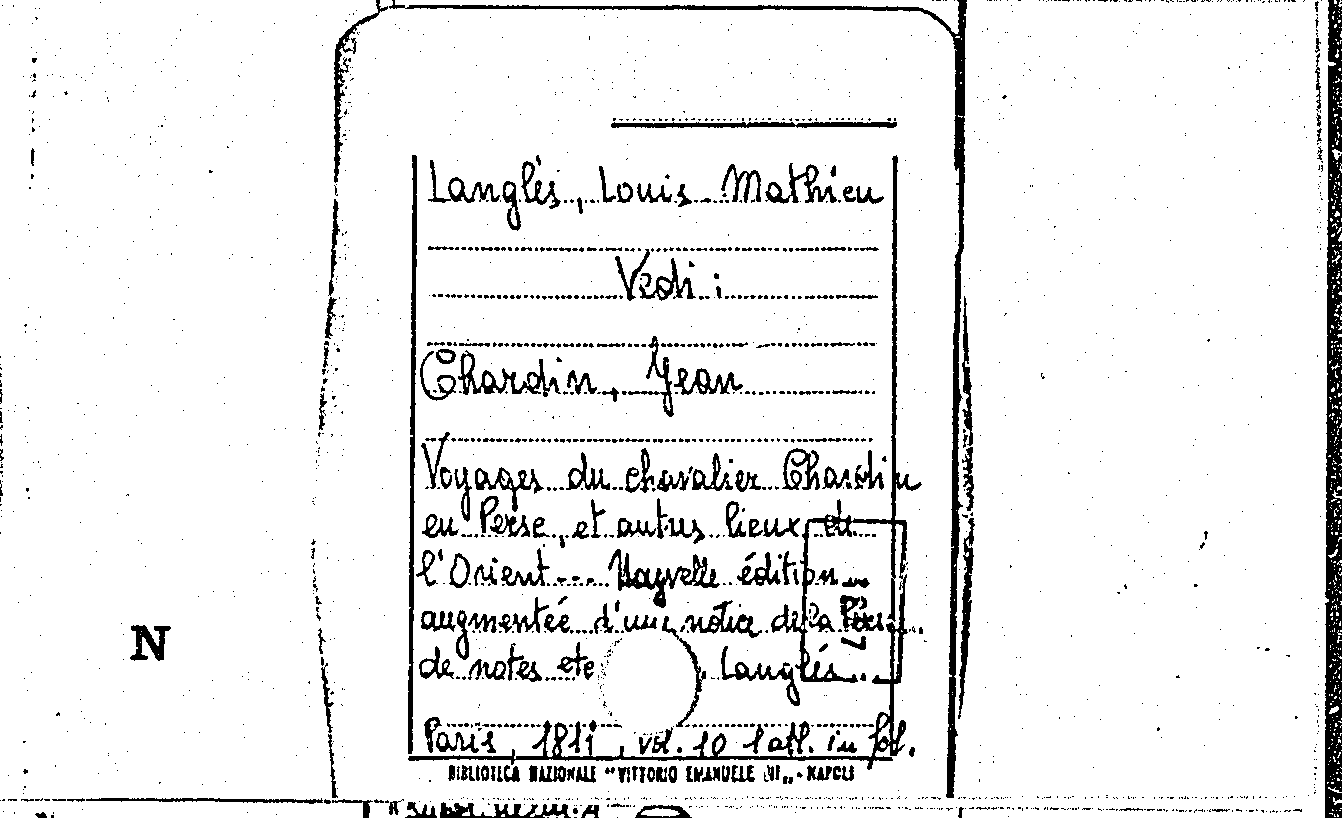 Langlès, Louis. Mathieu
Vedi :
Chardin, Jean
Voyages du chevalier Chardin
en Perse, et autres lieux de
l'Orient... Nouvelle édition
augmenteé d'une notice de la Perse
de notes etc Langlés...
N
Paris, 1811, vol. 10 1 atl. in fol.
BIBLIOTECA NAZIONALE "VITTORIO EMANUELE III" - NAPOLI